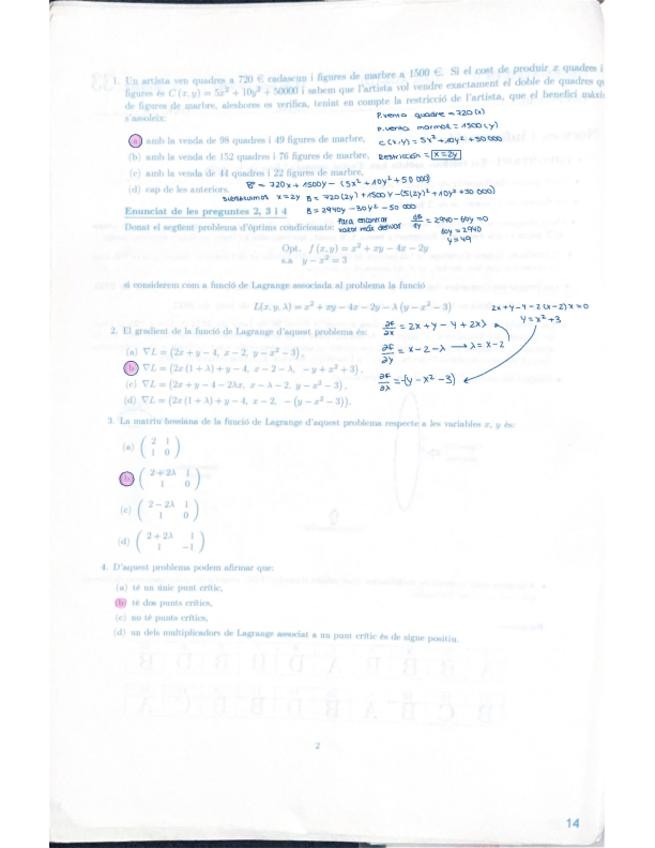 1. Un artista ven quadres a 720 € cadascun i figures de marbre a 1500 €. Si el cost de produir x quadres i
figures és C (x, y) = 5x² + 10y² + 50000 i sabem que l'artista vol vendre exactament el doble de quadres
de figures de marbre, aleshores es verifica, tenint en compte la restricció de l'artista, que el benefici
s'assoleix:
P.venta quadre = 720 (x)
P.venta marmol = 1500 (y)
(a) amb la venda de 98 quadres i 49 figures de marbre,
C (x, y) = 5x² + 10y² + 50000
(b) amb la venda de 152 quadres i 76 figures de marbre,
Restricción = x=2y
(c) amb la venda de 44 quadres i 22 figures de marbre,
(d) cap de les anteriors.
B = 720x + 1500y - (5x² + 10y² + 50 000)
x = 2y B = 720 (2y) + 1500y - (5(2y)² + 10y² + 50 000)
Enunciat de les preguntes 2, 3 i 4
B = 2940y - 30y² - 50 000
Donat el següent problema d'òptims condicionats:
Para encontrar
valor máx derivar
dB/dy = 2940 - 60y = 0
60y = 2940
y = 49
Opt. f (x, y) = x² + xy − 4x − 2y
s.a y − x² = 3
si considerem com a funció de Lagrange associada al problema la funció
L(x, y, λ) = x² + xy − 4x − 2y − λ (y − x² − 3)
2x + y - 4 - 2 (x-2) x = 0
y = x² + 3
2. El gradient de la funció de Lagrange d'aquest problema és:
∂F/∂x = 2x + y - 4 + 2xλ
(a) ∇L = (2x + y − 4, x − 2, y − x² − 3),
∂F/∂y = x - 2 - λ → λ = x - 2
(b) ∇L = (2x (1 + λ) + y − 4, x − 2 − λ, −y + x² + 3),
(c) ∇L = (2x + y − 4 − 2λx, x − λ − 2, y − x² − 3),
∂F/∂λ = -(y - x² - 3)
(d) ∇L = (2x (1 + λ) + y − 4, x − 2, − (y − x² − 3)).
3. La matriu hessiana de la funció de Lagrange d'aquest problema respecte a les variables x, y és:
(a) ( 2 1
1 0 )
(b) ( 2 + 2λ 1
1 0 )
(c) ( 2 − 2λ 1
1 0 )
(d) ( 2 + 2λ 1
1 −1 )
4. D'aquest problema podem afirmar que:
(a) té un únic punt crític,
(b) té dos punts crítics,
(c) no té punts crítics,
(d) un dels multiplicadors de Lagrange associat a un punt crític és de signe positiu.
2
14